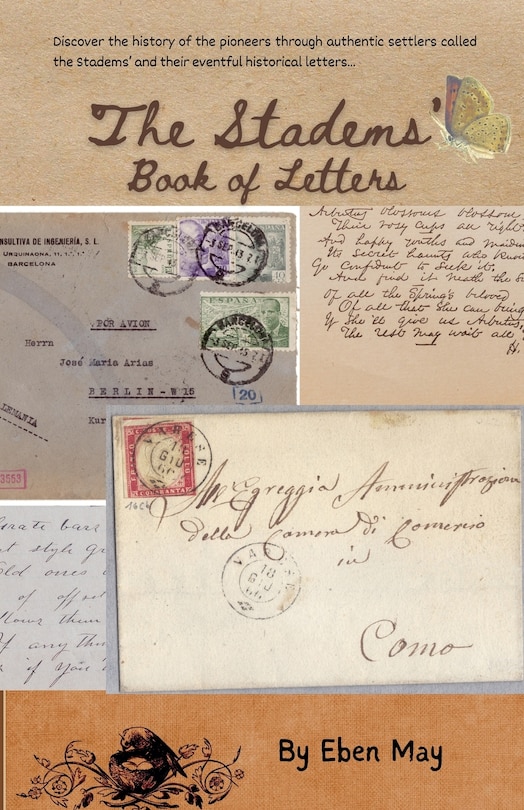 Discover the history of the pioneers through authentic settlers called
the Stadems' and their eventful historical letters...
The Stadems'
Book of Letters
NSULTIVA DE INGENIERÍA, S. L.
URQUINAONA, 11, 1.º, 1.ª
BARCELONA
BARCELONA
ESPAÑA
BARCELONA
POR AVION
Herrn
José Maria Arias
BERLIN-W15
20
Kur
LEMANIA
3553
Arbutus blossoms blossom
Their rosy cups all right
And happy youths and maidens
Its secret haunts who know
Go confident to seek it.
And find it neath the
Of all the Spring's beloved
Of all that she can bring
If she'll give us Arbutus,
The rest may wait all
H.
FRANCO
BOLLO
QUARANTA
VARESE
18
GIU
All' Egreggia Amministrazione
della Camera di Comercio
in
Como
VARESE
18
GIU
style
old ones
of
them
if any
if you
By Eben May